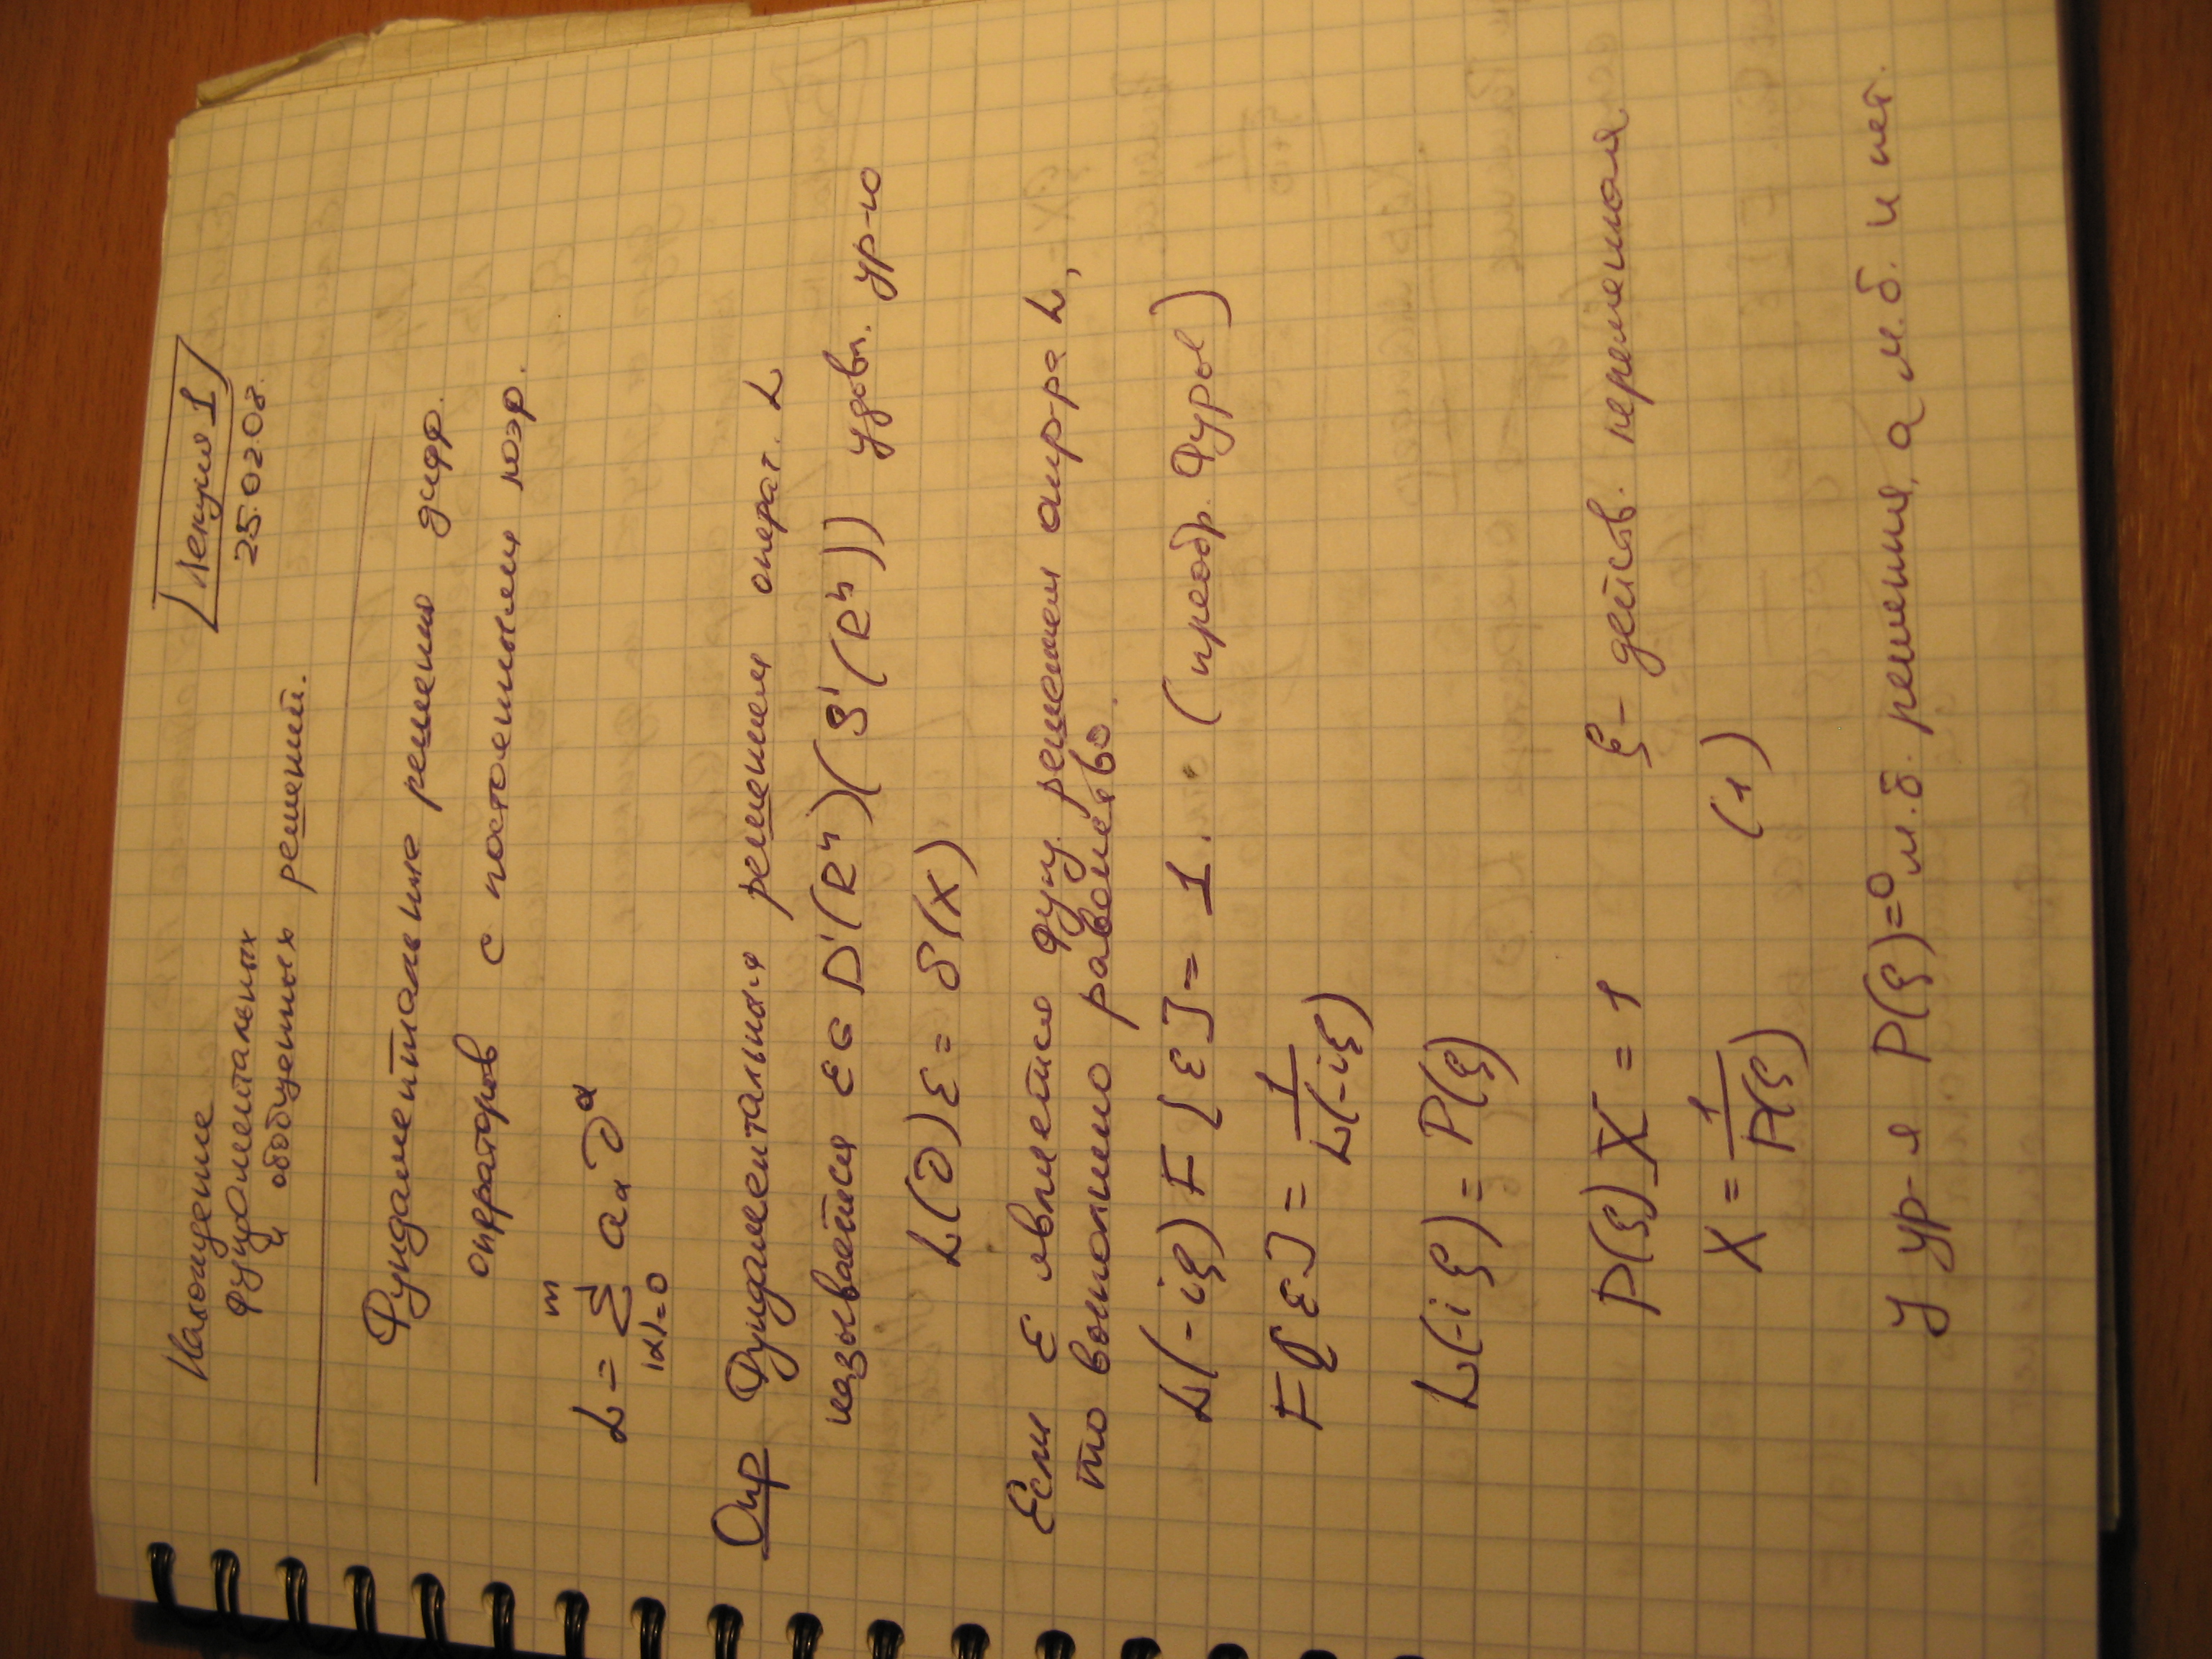 Лекция 1
25.02.08.
Нахождение
фундаментальных
и обобщенных решений.
Фундаментальные решения дифф.
операторов с постоянными коэф.
L = Σ^m_{|α|=0} a_α ∂^α
Опр Фундаментальным решением операт. L
называется ε ∈ D'(R^n)(S'(R^n)) удовл. ур-ю
L(∂)ε = δ(x)
Если ε является фун. решением опр-ра L,
то выполнено равенство.
L(-iξ)F[ε] = 1. (преобр. Фурье)
F[ε] = 1/L(-iξ)
L(-iξ) = P(ξ)
P(ξ)X = 1 ξ - действ. переменная.
X = 1/P(ξ) (1)
У ур-я P(ξ)=0 м.б. решения, а м.б. и нет.